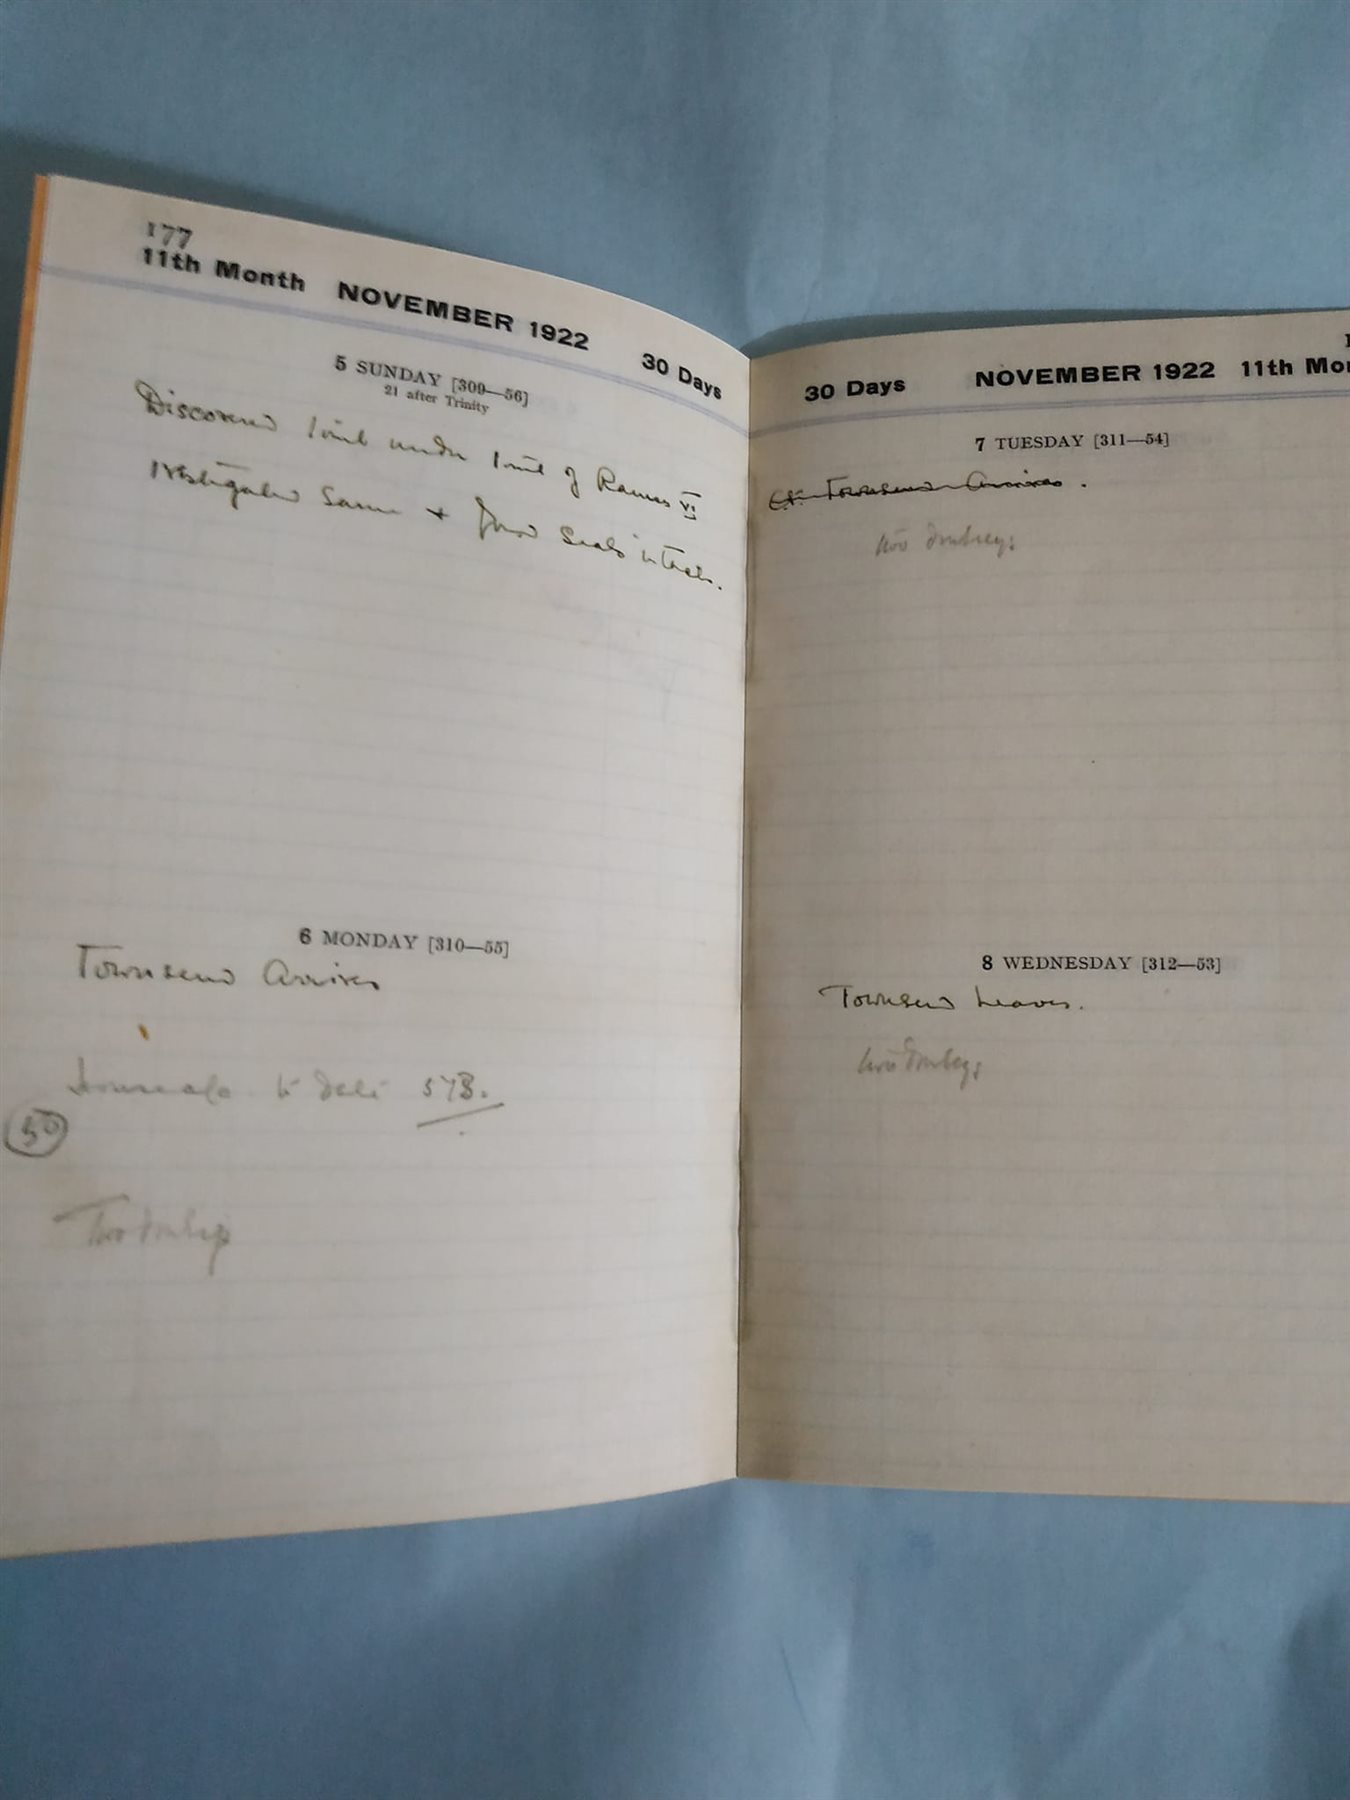 177
11th Month NOVEMBER 1922 30 Days
5 SUNDAY [309—56]
21 after Trinity
Discovered tomb under tomb of Ramses VI
Investigated same & found seals intact.
6 MONDAY [310—55]
Townsend arrives
to date 578.
50
Two donkeys
30 Days NOVEMBER 1922 11th Mon
7 TUESDAY [311—54]
Townsend Arrives.
two donkeys
8 WEDNESDAY [312—53]
Townsend leaves.
two donkeys